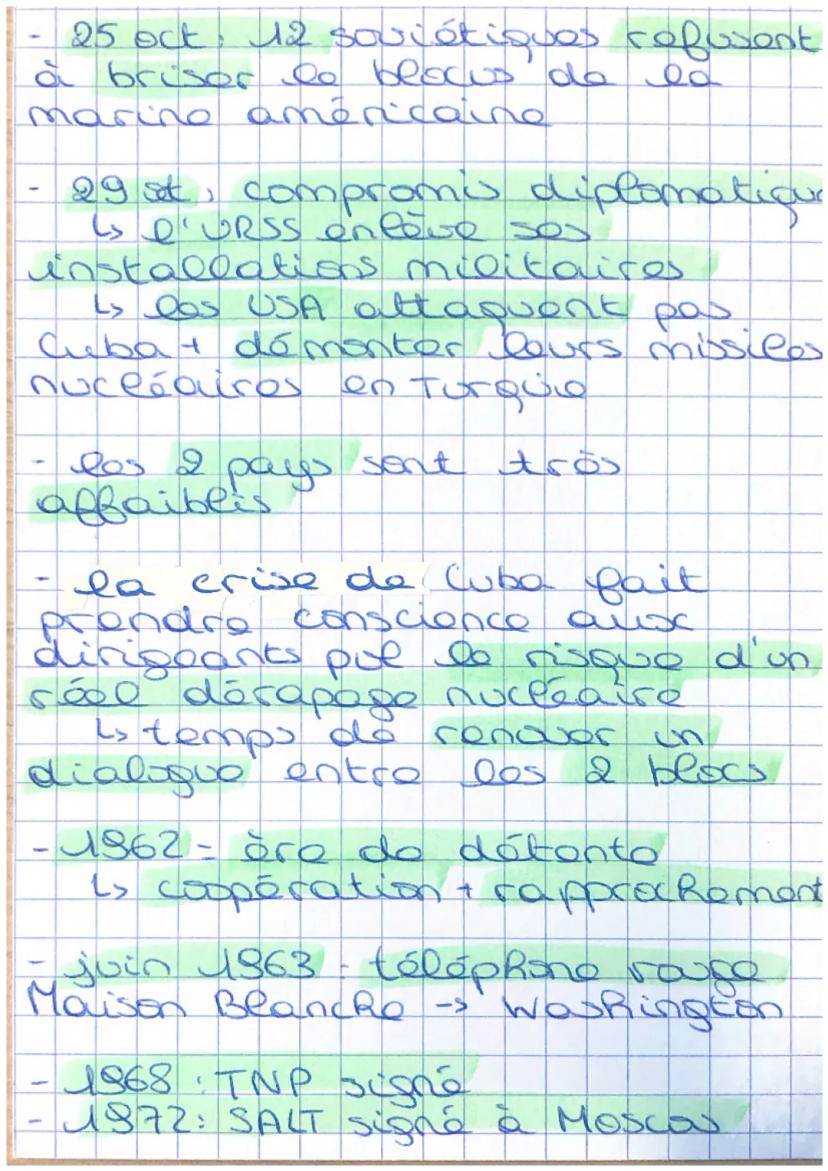 - 25 oct : 12 soviétiques refusent
à briser le blocus de la
marine américaine
- 29 oct : compromis diplomatique
↳ l'URSS enlève ses
installations militaires
↳ les USA attaquent pas
Cuba + démonter leurs missiles
nucléaires en Turquie
- les 2 pays sont très
affaiblis
- la crise de Cuba fait
prendre conscience aux
dirigeants que le risque d'un
réel dérapage nucléaire
↳ temps de renouer un
dialogue entre les 2 blocs
- 1962 - ère de détente
↳ coopération + rapprochement
- juin 1963 - téléphone rouge
Maison Blanche -> Washington
- 1968 : TNP signé
- 1972 : SALT signé à Moscou